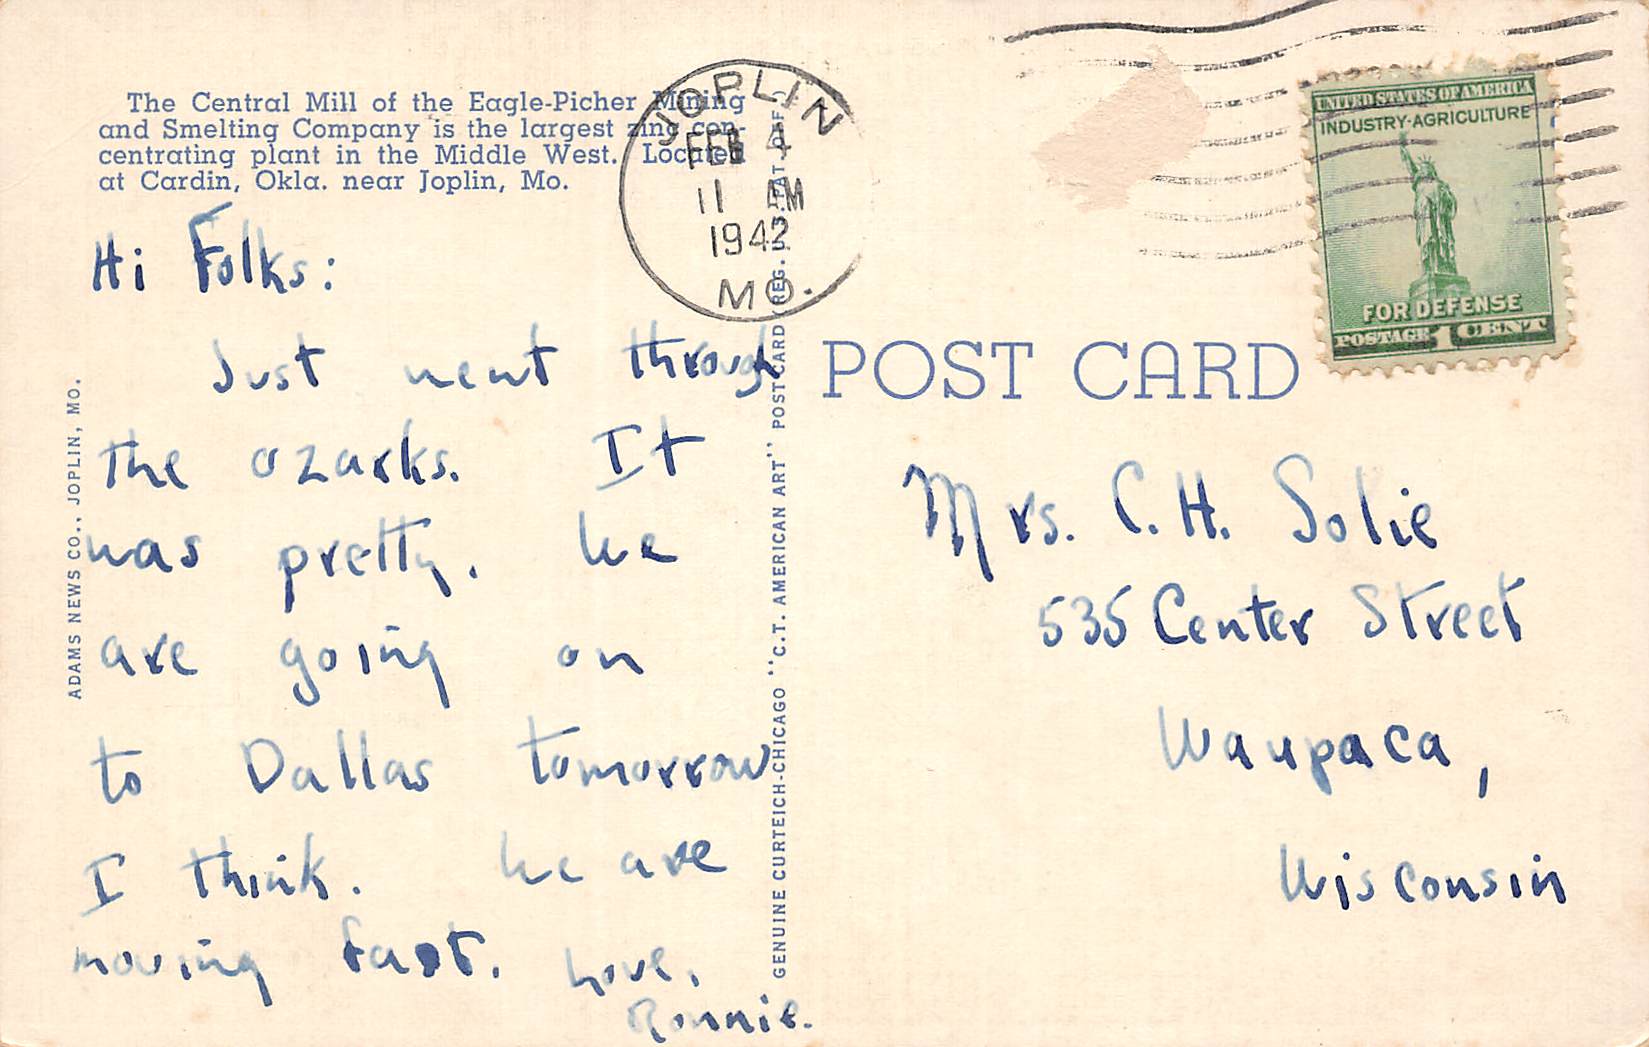 The Central Mill of the Eagle-Picher Mining
and Smelting Company is the largest zinc con-
centrating plant in the Middle West. Located
at Cardin, Okla. near Joplin, Mo.
JOPLIN
FEB 4
11 AM
1942
MO.
UNITED STATES OF AMERICA
INDUSTRY·AGRICULTURE
FOR DEFENSE
POSTAGE 1 CENT
POST CARD
Hi Folks:
Just went through
the Ozarks. It
was pretty. We
are going on
to Dallas tomorrow
I think. We are
moving fast. Love,
Ronnie.
ADAMS NEWS CO., JOPLIN, MO.
GENUINE CURTEICH-CHICAGO "C.T. AMERICAN ART" POSTCARD (REG. U.S. PAT. OFF.)
Mrs. C. H. Solie
535 Center Street
Waupaca,
Wisconsin